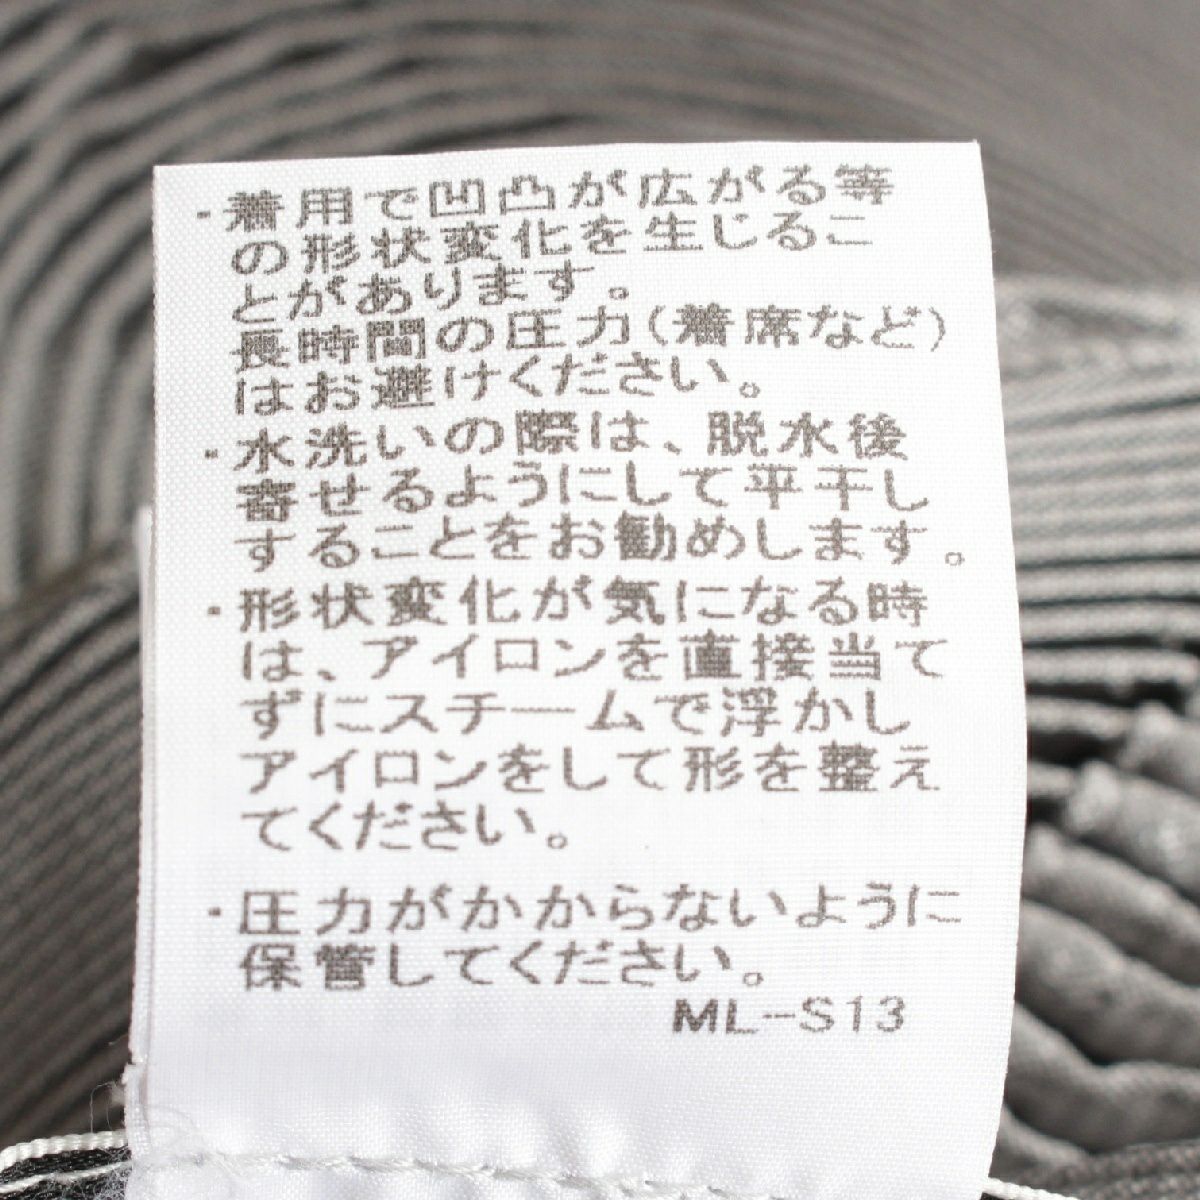 ・着用で凹凸が広がる等
の形状変化を生じるこ
とがあります。
長時間の圧力(着席など)
はお避けください。
・水洗いの際は、脱水後
寄せるようにして平干し
することをお勧めします。
・形状変化が気になる時
は、アイロンを直接当て
ずにスチームで浮かし
アイロンをして形を整え
てください。
・圧力がかからないように
保管してください。
ML-S13